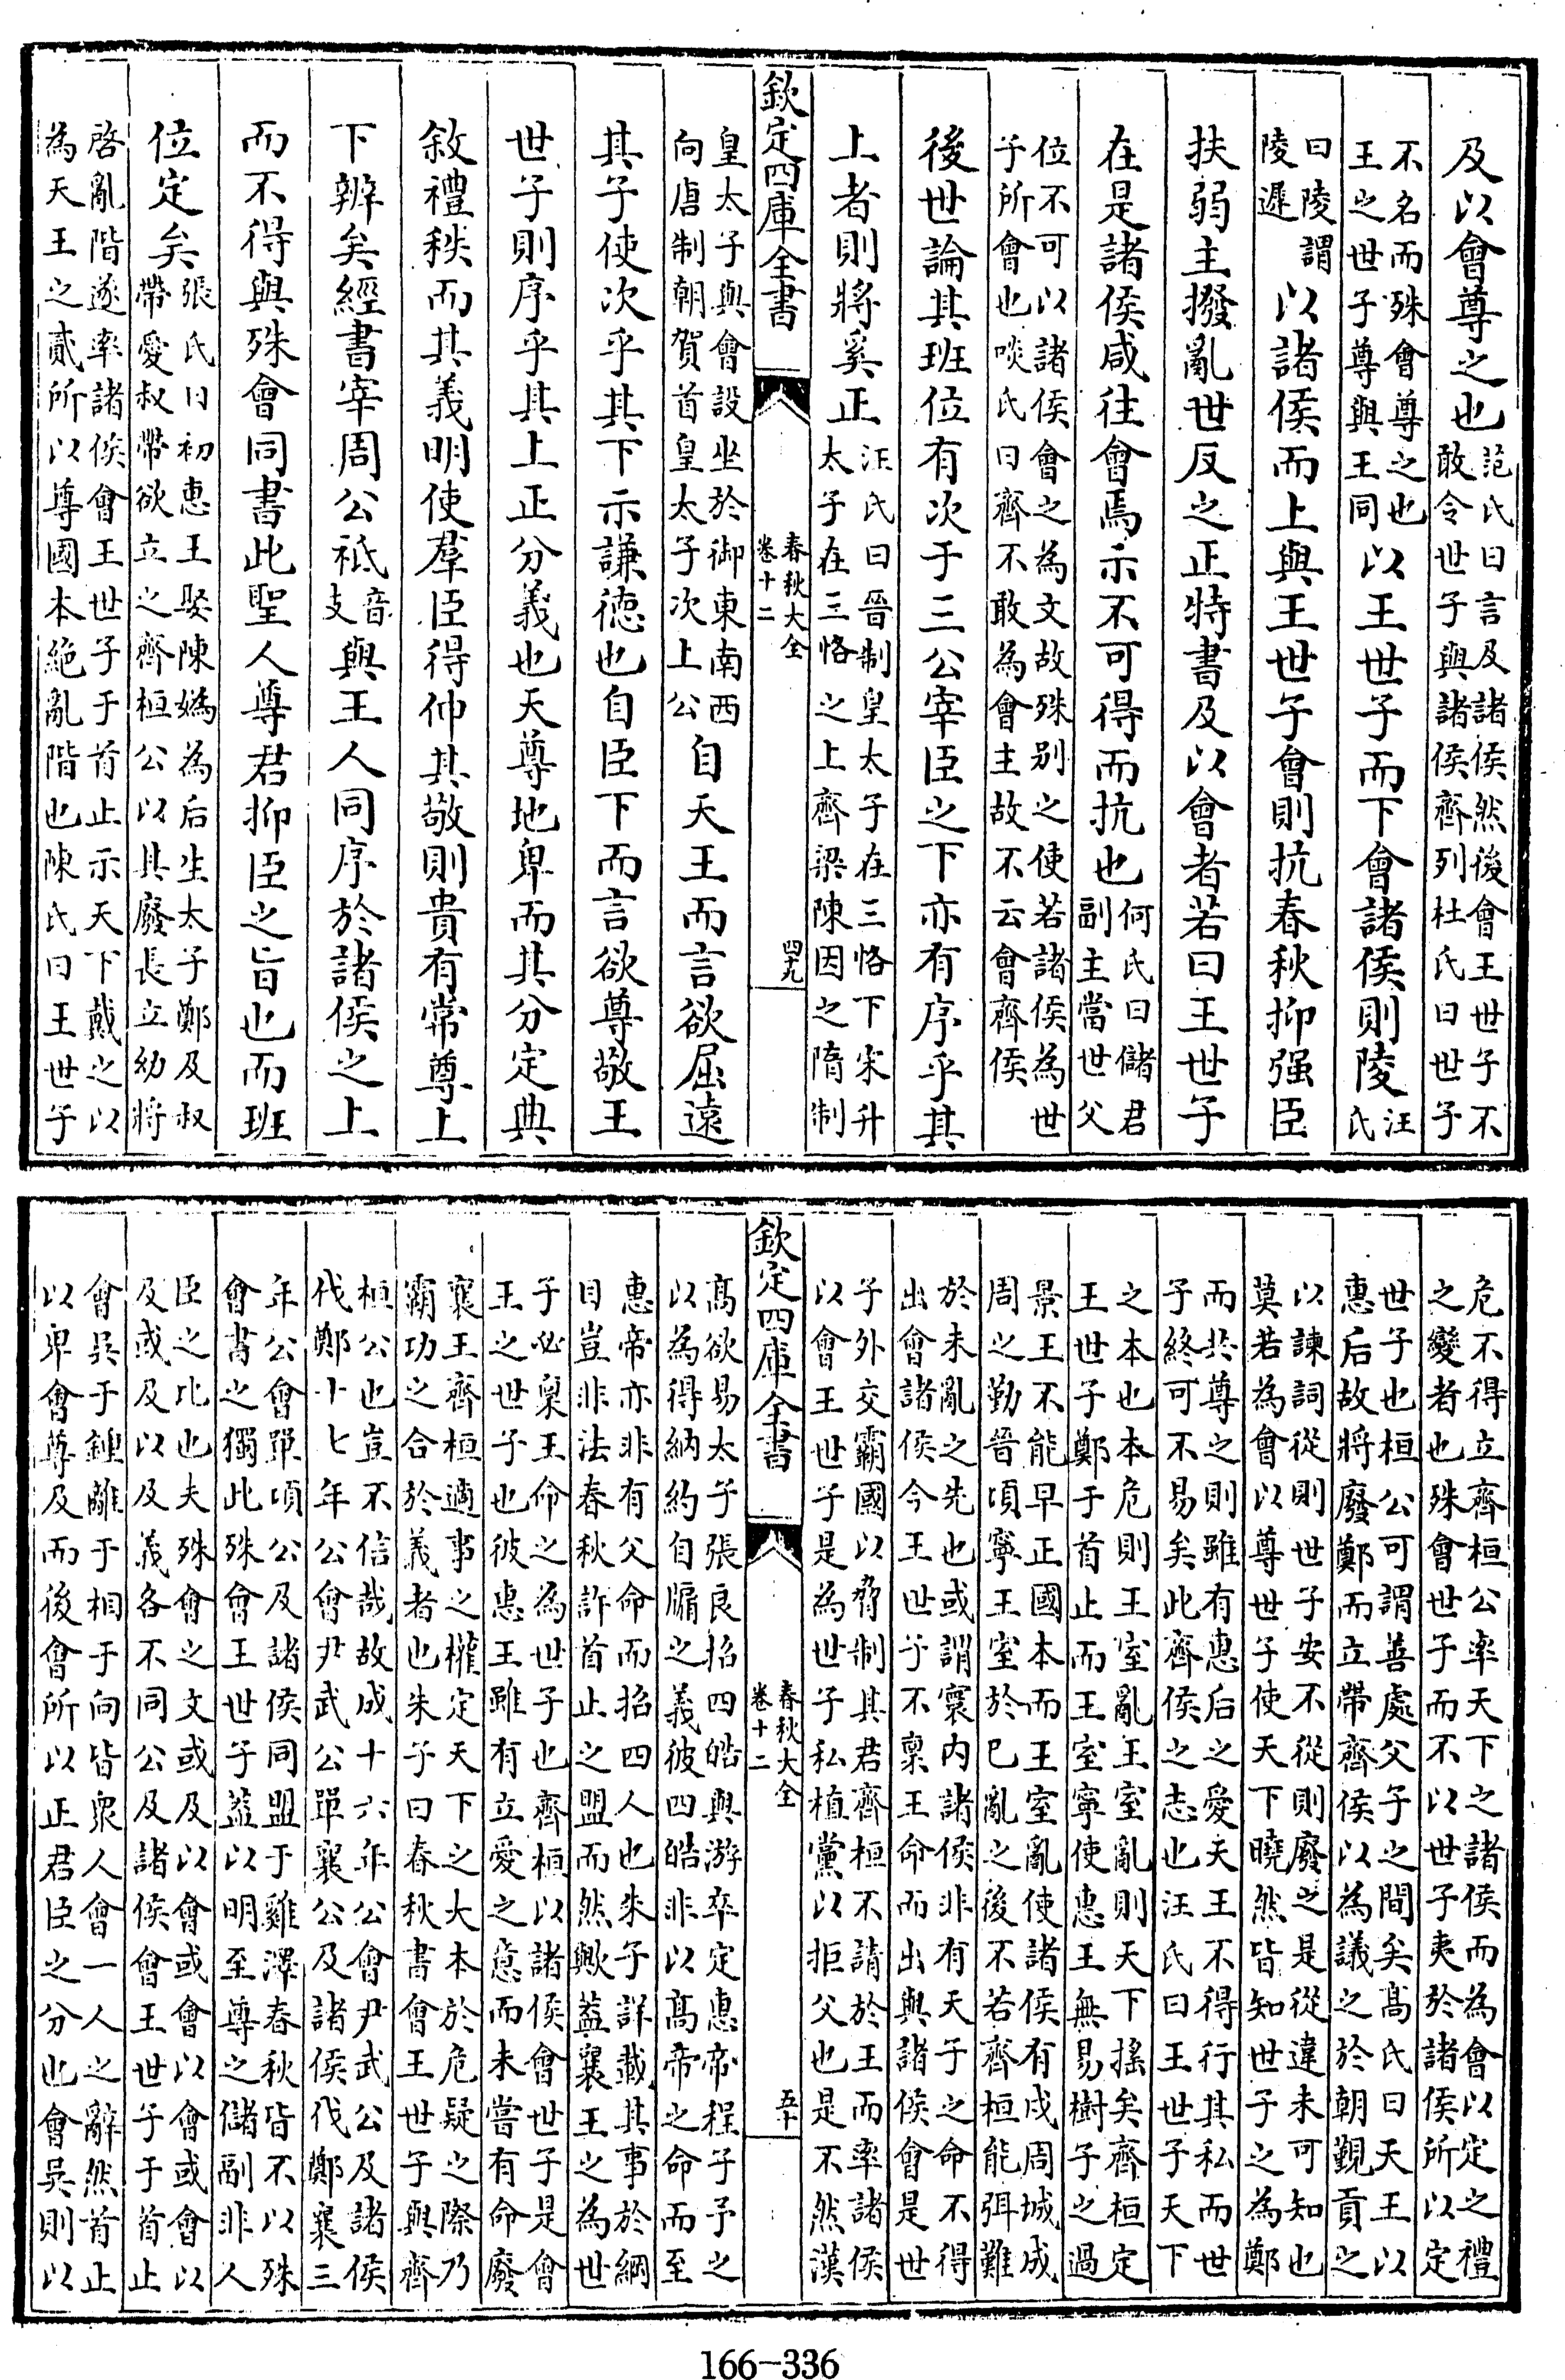 及以會尊之也范氏曰言及諸侯然後會王世子不敢令世子與諸侯齊列杜氏曰世子
不名而殊會尊之也王之世子尊與王同以王世子而下會諸侯則陵汪氏
曰陵謂陵遲以諸侯而上與王世子會則抗春秋抑强臣
扶弱主撥亂世反之正特書及以會者若曰王世子
在是諸侯咸往會焉示不可得而抗也何氏曰儲君副主當世父
位不可以諸侯會之為文故殊别之使若諸侯為世
子所會也啖氏曰齊不敢為會主故不云會齊侯
後世論其班位有次于三公宰臣之下亦有序乎其
上者則將奚正汪氏曰晉制皇太子在三恪下宋升太子在三恪之上齊梁陳因之隋制
欽定四庫全書
春秋大全
卷十二
四九
皇太子與會設坐於御東南西向唐制朝賀首皇太子次上公自天王而言欲屈遠
其子使次乎其下示謙德也自臣下而言欲尊敬王
世子則序乎其上正分義也天尊地卑而其分定典
敘禮秩而其義明使羣臣得伸其敬則貴有常尊上
下辨矣經書宰周公祗音支與王人同序於諸侯之上
而不得與殊會同書此聖人尊君抑臣之旨也而班
位定矣張氏曰初惠王娶陳媯為后生太子鄭及叔帶愛叔帶欲立之齊桓公以其廢長立幼將
啓亂階遂率諸侯會王世子于首止示天下戴之以
為天王之貳所以尊國本絶亂階也陳氏曰王世子
危不得立齊桓公率天下之諸侯而為會以定之禮
之變者也殊會世子而不以世子夷於諸侯所以定
世子也桓公可謂善處父子之間矣髙氏曰天王以
惠后故將廢鄭而立帶齊侯以為議之於朝覲貢之
以諫詞從則世子安不從則廢之是從違未可知也
莫若為會以尊世子使天下曉然皆知世子之為鄭
而共尊之則雖有惠后之愛天王不得行其私而世
子終可不易矣此齊侯之志也汪氏曰王世子天下
之本也本危則王室亂王室亂則天下搖矣齊桓定
王世子鄭于首止而王室寧使惠王無易樹子之過
景王不能早正國本而王室亂使諸侯有戍周城成
周之勤晉頃寧王室於已亂之後不若齊桓能弭難
於未亂之先也或謂寰内諸侯非有天子之命不得
出會諸侯今王世子不稟王命而出與諸侯會是世
子外交霸國以脅制其君齊桓不請於王而率諸侯
以會王世子是為世子私植黨以拒父也是不然漢
欽定四庫全書
春秋大全
卷十二
五十
髙欲易太子張良招四皓與游卒定惠帝程子予之
以為得納約自牖之義彼四皓非以髙帝之命而至
惠帝亦非有父命而招四人也朱子詳載其事於綱
目豈非法春秋許首止之盟而然歟蓋襄王之為世
子必稟王命之為世子也齊桓以諸侯會世子是會
王之世子也彼惠王雖有立愛之意而未嘗有命廢
襄王齊桓適事之權定天下之大本於危疑之際乃
霸功之合於義者也朱子曰春秋書會王世子與齊
桓公也豈不信哉故成十六年公會尹武公及諸侯
伐鄭十七年公會尹武公單襄公及諸侯伐鄭襄三
年公會單頃公及諸侯同盟于雞澤春秋皆不以殊
會書之獨此殊會王世子蓋以明至尊之儲副非人
臣之比也夫殊會之文或及以會或會以會或會以
及或及以及義各不同公及諸侯會王世子于首止
會吳于鍾離于相于向皆衆人會一人之辭然首止
以卑會尊及而後會所以正君臣之分也會吳則以
166-336